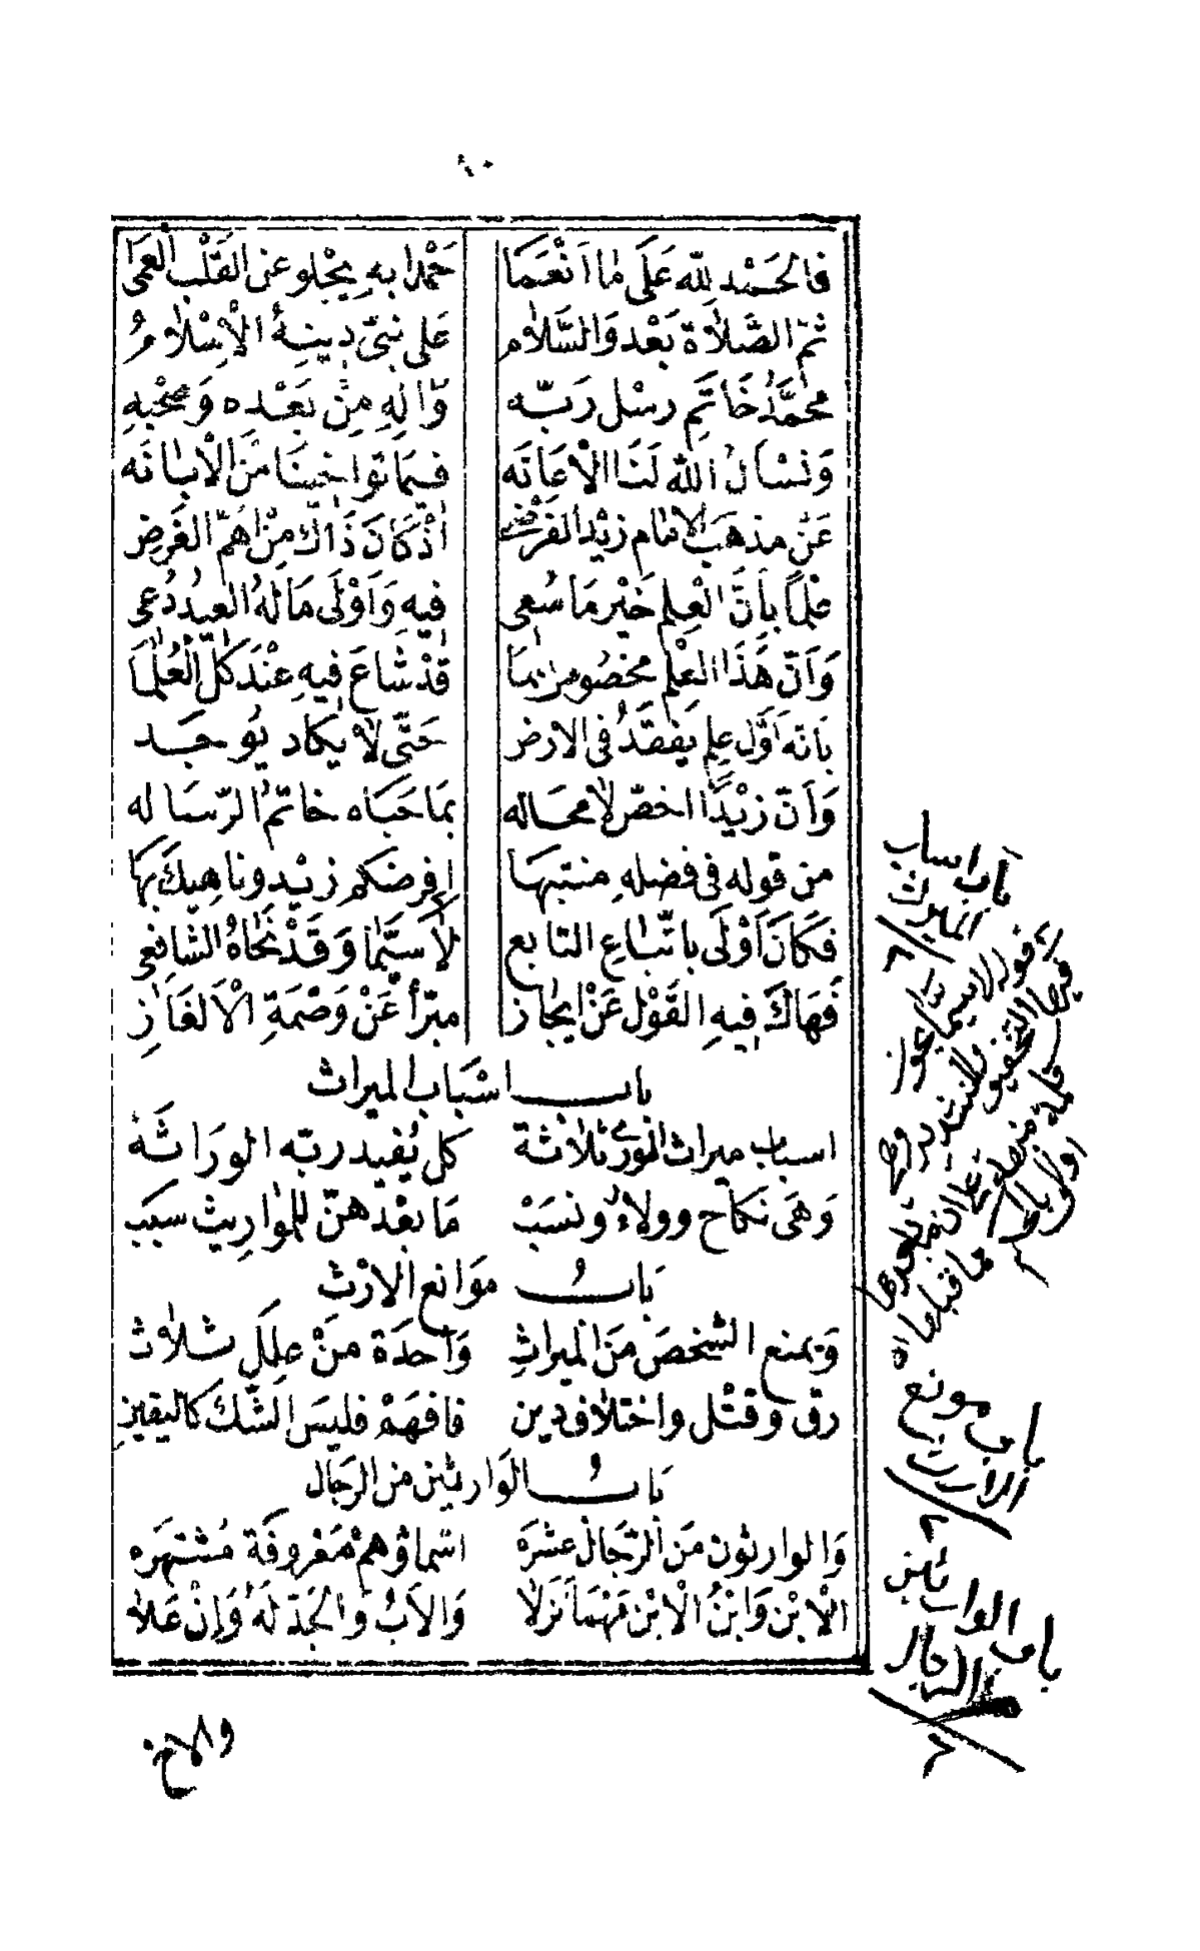 فالحَمْد لِلّه عَلَى مَا اَنْعَمَا حَمْدًا بهِ يَجْلو عنِ القَلْبِ العَمَى
ثمّ الصَّلاَة بَعْد وَالسَّلاَم عَلى نبىّ دينِهُ الْاِسْلاَمُ
محمّدُ خَاتَم رسْل رَبّه وَّالِهِ مِنْ بَعْده وَصَحْبِهِ
وَنسْاَل الله لَنَا الْاعَانَه فيمَا توَاخينَا مَن الْابَانَه
عَنْ مذهَب الامَام زيْد الفَرَضى اذْ كَانَ ذَاكَ مِنْ اَهَمّ الغَرَضِ
عْلمًا باَنَّ العِلم خَيْر مَا سُعى فيه وَاَوْلَى مَالهُ العبدُ دُعى
وَاَنّ هَذَا العِلْم مخصُوص بمَا قدْ شَاعَ فيهِ عِنْدَ كلّ العُلمَا
بَانّه اَوّل علم يَفقَدُ فى الارض حَتّى لَا يكاد يُوجَد
وَاَنّ زيْدًا اخصّ لَا محَاله بمَا حَبَاه خاتمُ الرّسَاله
من قوله فى فضلهِ منبّهَا افرضكم زيْد وناهيكَ بهَا
فكَانَ اَوْلَى باتّبَاعِ التابع لَا سيّمَا وَقَدْ نحَاهُ الشافِعى
فَهَاكَ فيهِ القَوْل عَنْ ايجَاز مبرّأ عَنْ وَصْمَةِ الْاَلغَازِ
باب اسْبَاب الميراث
اسباب ميراث الوَرى ثلاَثة كل يُفيد ربّه الورَاثَهْ
وَهْىَ نكَاح وولَاءُ ونسَبْ مَا بعْدَهنّ للموَاريث سبَب
بَابُ موَانع الارْث
وَيمنع الشخصَ مَن الميرَاثِ وَاحدَة مَنْ علل ثلاث
رق وقتْل واختلاف دين فافهَمْ فليسَ الشّكّ كاليقينِ
بَابُ الوَارثين من الرجَال
وَالوارثون مَن الرّجَال عشرَه اسْماؤهمْ مَعْروفَة مُشتهَره
الْابْن وَابْنُ الْابْن مَهْمَا نزَلَا وَالاَبُ وَالجَدّ لهُ وَاِنْ عَلَا
والاخ
باب اساب
الميراث
باب مونع
الارث
باب الوارثين
الرجال